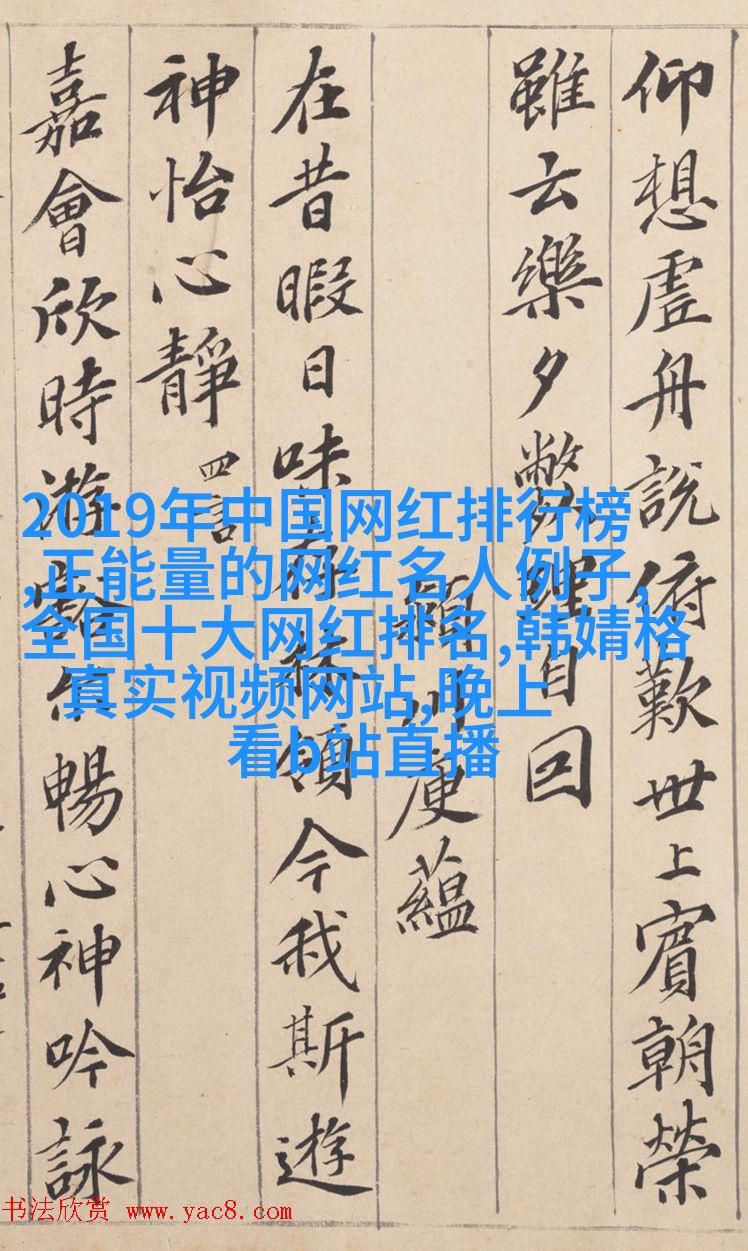 仰想虛舟說俯歎世上賓朝榮
雖云樂夕弊理自回
潁川庾蘊
在昔暇日味存林嶺今我斯遊
神怡心靜 四言
嘉會欣時游豁尒暢心神吟詠
2019年中国网红排行榜
,正能量的网红名人例子,
全国十大网红排名,韩婧格
真实视频网站,晚上
看b站直播
书法欣赏 www.yac8.com